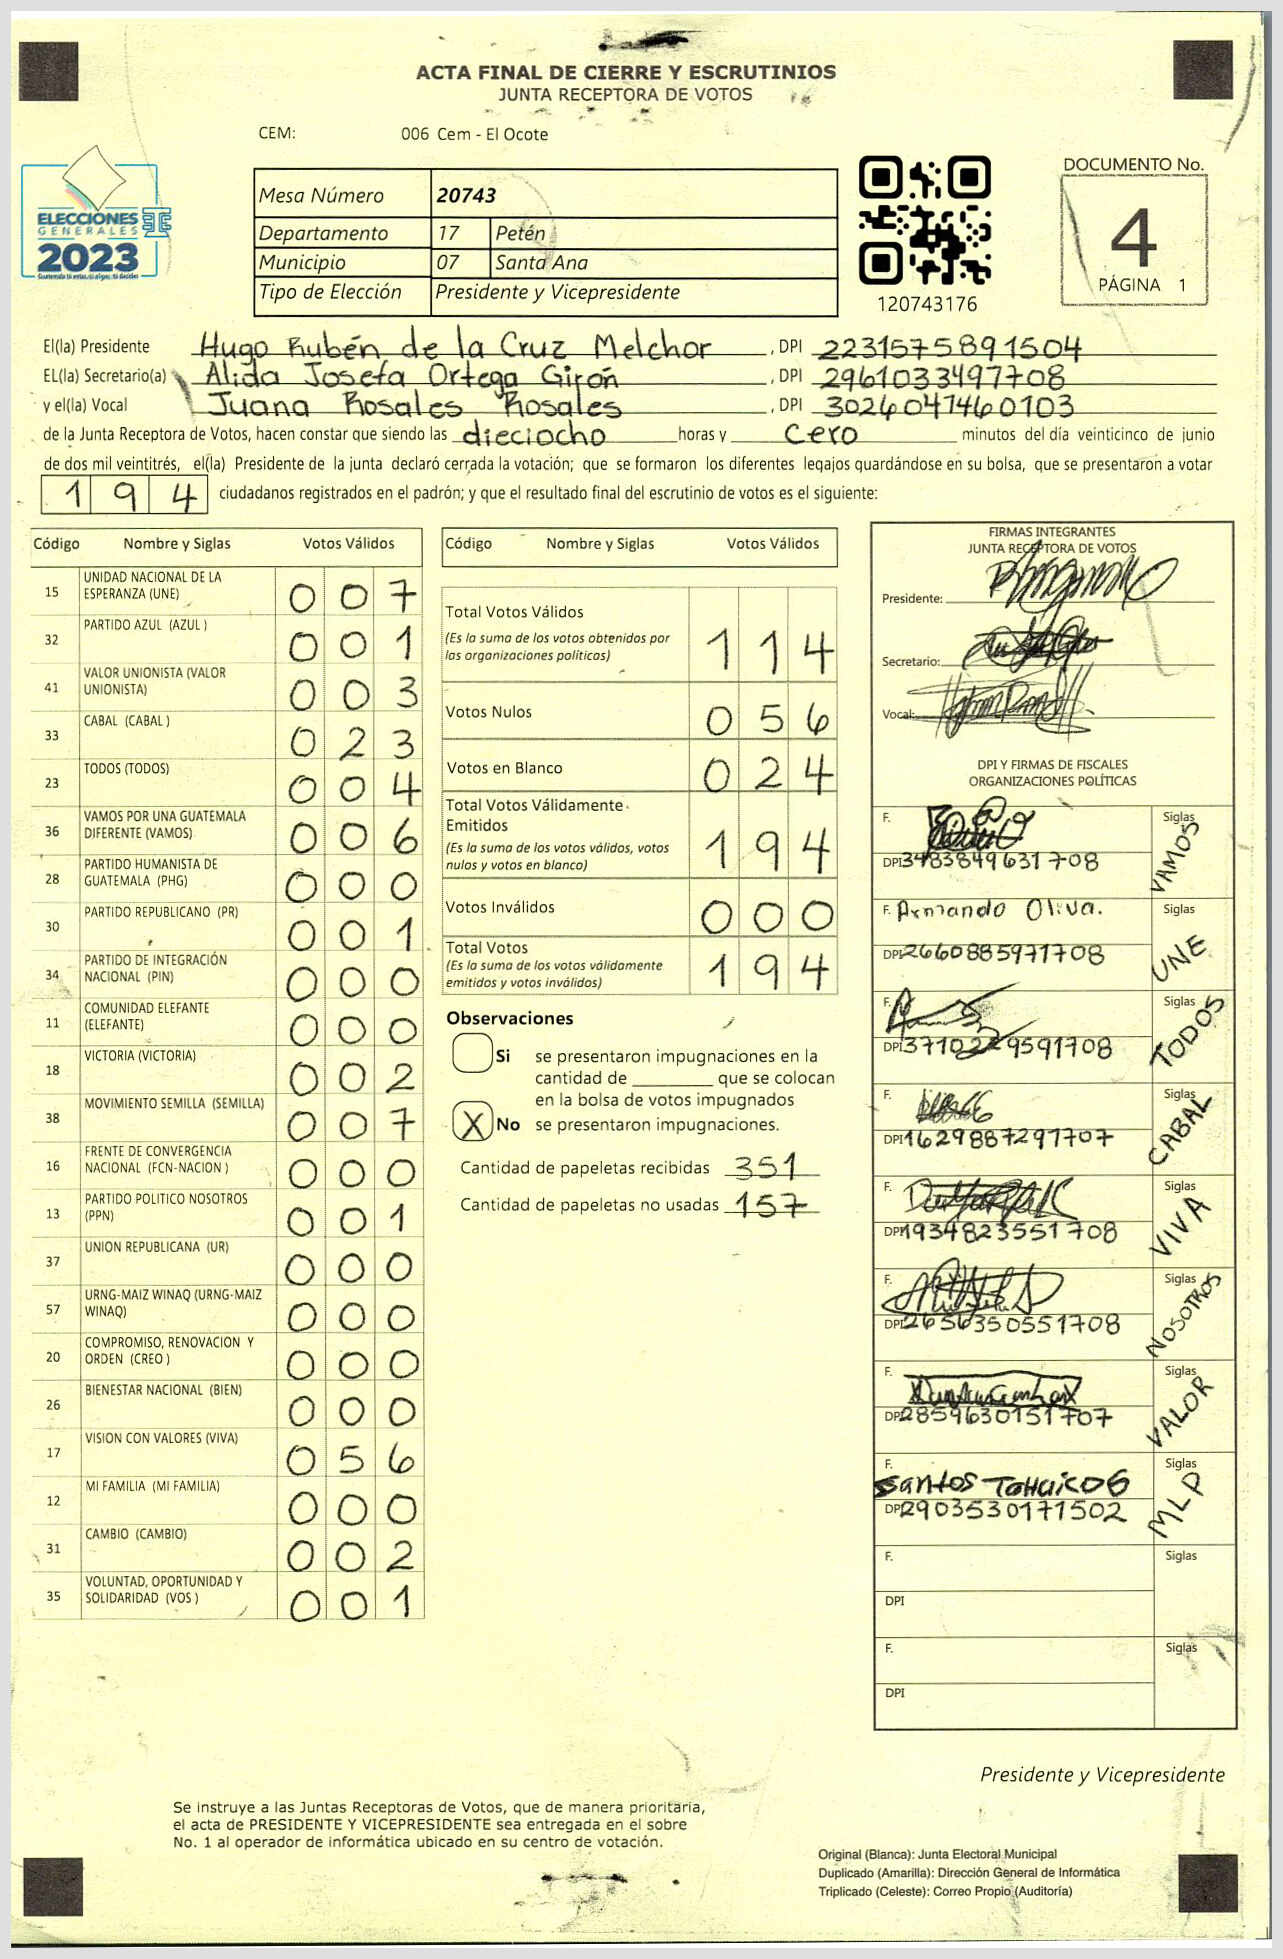 ACTA FINAL DE CIERRE Y ESCRUTINIOS
JUNTA RECEPTORA DE VOTOS
CEM: 006 Cem - El Ocote
ELECCIONES
GENERALES
2023
Mesa Número 20743
Departamento 17 Petén
Municipio 07 Santa Ana
Tipo de Elección Presidente y Vicepresidente
120743176
DOCUMENTO No.
4
PÁGINA 1
El(la) Presidente Hugo Rubén de la Cruz Melchor, DPI 2231575891504
EL(la) Secretario(a) Alida Josefa Ortega Girón, DPI 2961033497708
y el(la) Vocal Juana Rosales Rosales, DPI 3026041460103
de la Junta Receptora de Votos, hacen constar que siendo las dieciocho horas y cero minutos del día veinticinco de junio
de dos mil veintitrés, el(la) Presidente de la junta declaró cerrada la votación; que se formaron los diferentes legajos guardándose en su bolsa, que se presentaron a votar
194 ciudadanos registrados en el padrón; y que el resultado final del escrutinio de votos es el siguiente:
Código Nombre y Siglas Votos Válidos
15 UNIDAD NACIONAL DE LA ESPERANZA (UNE) 007
32 PARTIDO AZUL (AZUL ) 001
41 VALOR UNIONISTA (VALOR UNIONISTA) 003
33 CABAL (CABAL ) 023
23 TODOS (TODOS) 004
36 VAMOS POR UNA GUATEMALA DIFERENTE (VAMOS) 006
28 PARTIDO HUMANISTA DE GUATEMALA (PHG) 000
30 PARTIDO REPUBLICANO (PR) 001
34 PARTIDO DE INTEGRACIÓN NACIONAL (PIN) 000
11 COMUNIDAD ELEFANTE (ELEFANTE) 000
18 VICTORIA (VICTORIA) 002
38 MOVIMIENTO SEMILLA (SEMILLA) 007
16 FRENTE DE CONVERGENCIA NACIONAL (FCN-NACION ) 000
13 PARTIDO POLITICO NOSOTROS (PPN) 001
37 UNION REPUBLICANA (UR) 000
57 URNG-MAIZ WINAQ (URNG-MAIZ WINAQ) 000
20 COMPROMISO, RENOVACION Y ORDEN (CREO ) 000
26 BIENESTAR NACIONAL (BIEN) 000
17 VISION CON VALORES (VIVA) 056
12 MI FAMILIA (MI FAMILIA) 000
31 CAMBIO (CAMBIO) 002
35 VOLUNTAD, OPORTUNIDAD Y SOLIDARIDAD (VOS ) 001
Código Nombre y Siglas Votos Válidos
Total Votos Válidos 114
(Es la suma de los votos obtenidos por
las organizaciones políticas)
Votos Nulos 056
Votos en Blanco 024
Total Votos Válidamente Emitidos 194
(Es la suma de los votos válidos, votos
nulos y votos en blanco)
Votos Inválidos 000
Total Votos 194
(Es la suma de los votos válidamente
emitidos y votos inválidos)
Observaciones
Si se presentaron impugnaciones en la
cantidad de ________ que se colocan
en la bolsa de votos impugnados
X No se presentaron impugnaciones.
Cantidad de papeletas recibidas 351
Cantidad de papeletas no usadas 157
FIRMAS INTEGRANTES
JUNTA RECEPTORA DE VOTOS
Presidente:
Secretario:
Vocal:
DPI Y FIRMAS DE FISCALES
ORGANIZACIONES POLÍTICAS
F. Siglas VAMOS
DPI 3483849631708
F. Armando Oliva. Siglas UNE
DPI 2660885971708
F. Siglas TODOS
DPI 3710229591708
F. Siglas CABAL
DPI 1629887297707
F. Siglas VIVA
DPI 1934823551708
F. Siglas NOSOTROS
DPI 2656350551708
F. Siglas VALOR
DPI 2859630151707
F. Santos Siglas MLP
DPI 2903530171502
F. Siglas
DPI
F. Siglas
DPI
Presidente y Vicepresidente
Se instruye a las Juntas Receptoras de Votos, que de manera prioritaria,
el acta de PRESIDENTE Y VICEPRESIDENTE sea entregada en el sobre
No. 1 al operador de informática ubicado en su centro de votación.
Original (Blanca): Junta Electoral Municipal
Duplicado (Amarilla): Dirección General de Informática
Triplicado (Celeste): Correo Propio (Auditoría)